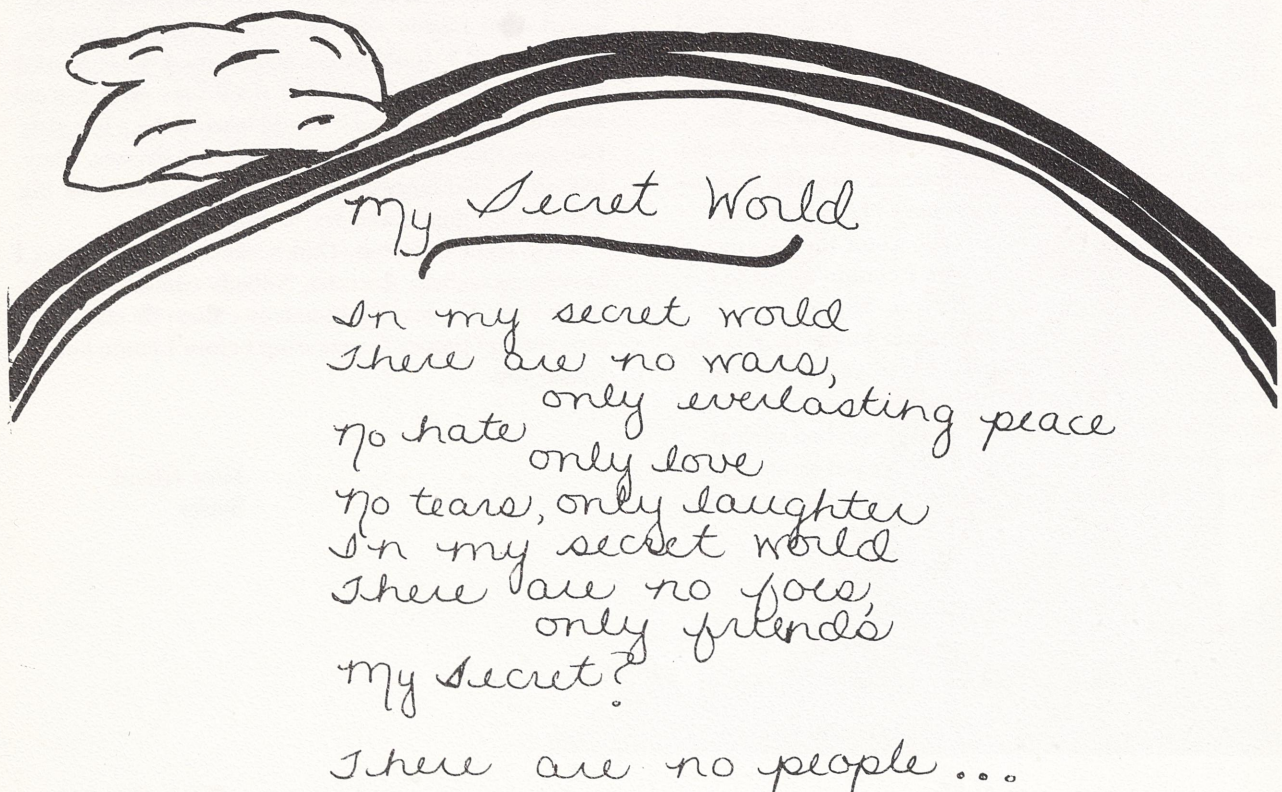 My Secret World
In my secret world
There are no wars,
only everlasting peace
No hate
only love
No tears, only laughter
In my secret world
There are no foes,
only friends
My Secret?
There are no people...